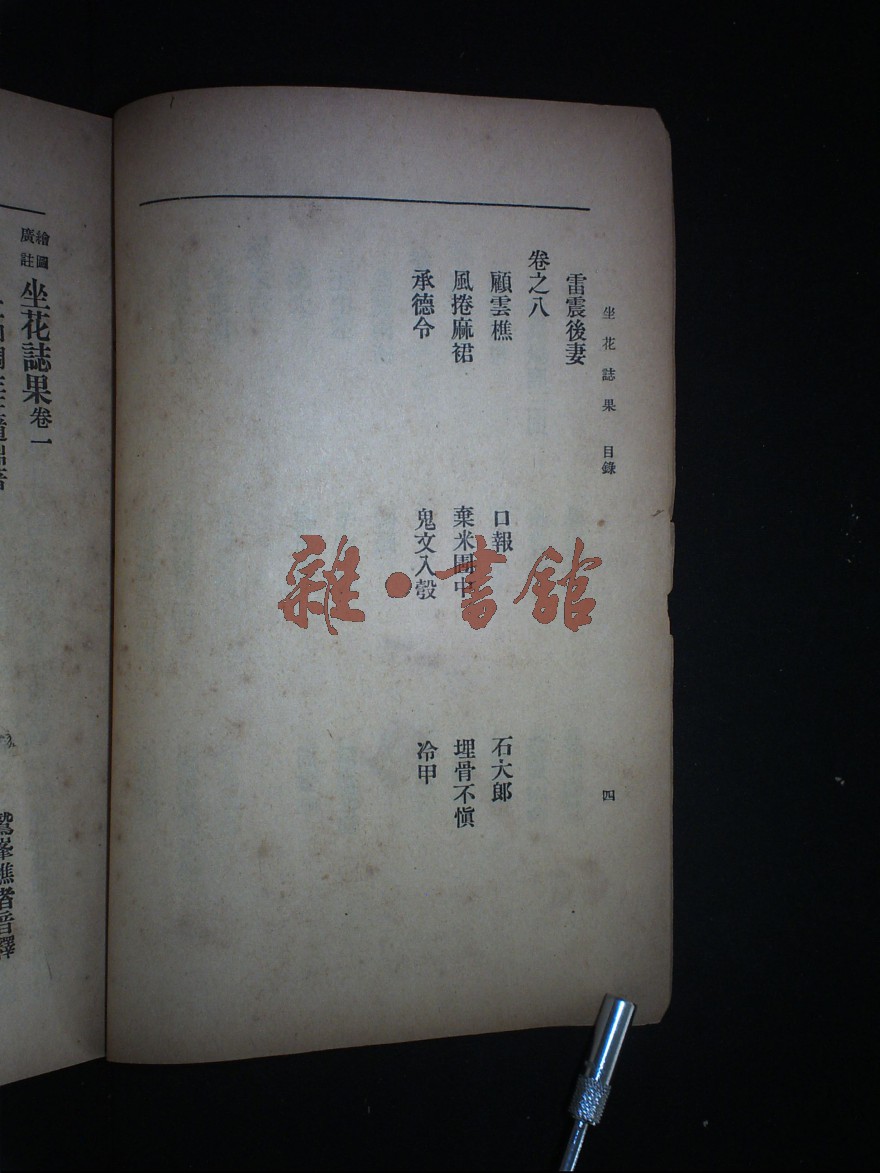 坐花誌果 目錄 四
雷震後妻
卷之八
顧雲樵 口報 石大郎
風捲麻裙 棄米圊中 埋骨不愼
承德令 鬼文入彀 冷甲
繪圖
廣註
坐花誌果卷一
鷲峯樵者音釋
雜·書館